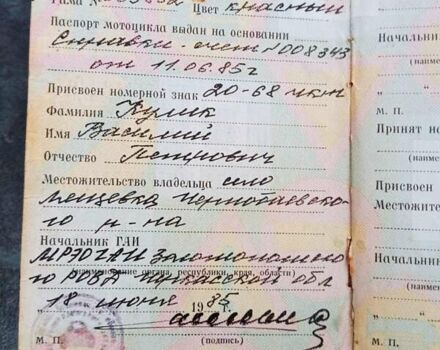 Рама № Цвет красный
Паспорт мотоцикла выдан на основании
Справки-счет № 008343
от 11.06.85г
Присвоен номерной знак 20-68 чкн
Фамилия Кулик
Имя Василий
Отчество Петрович
Местожительство владельца село
Мещевка Чернобаевско-
го р-на
Начальник ГАИ
МРЭО ГАИ Золотоношско-
го РОВД Черкасской обл
(наименование органа, республики, края, области)
18 июня 1985
М. П. (подпись)
Начальник
(наиме
М. П.
Принят на
(наиме
Присвоен
Местожите
Начальник
(наиме
М. П.